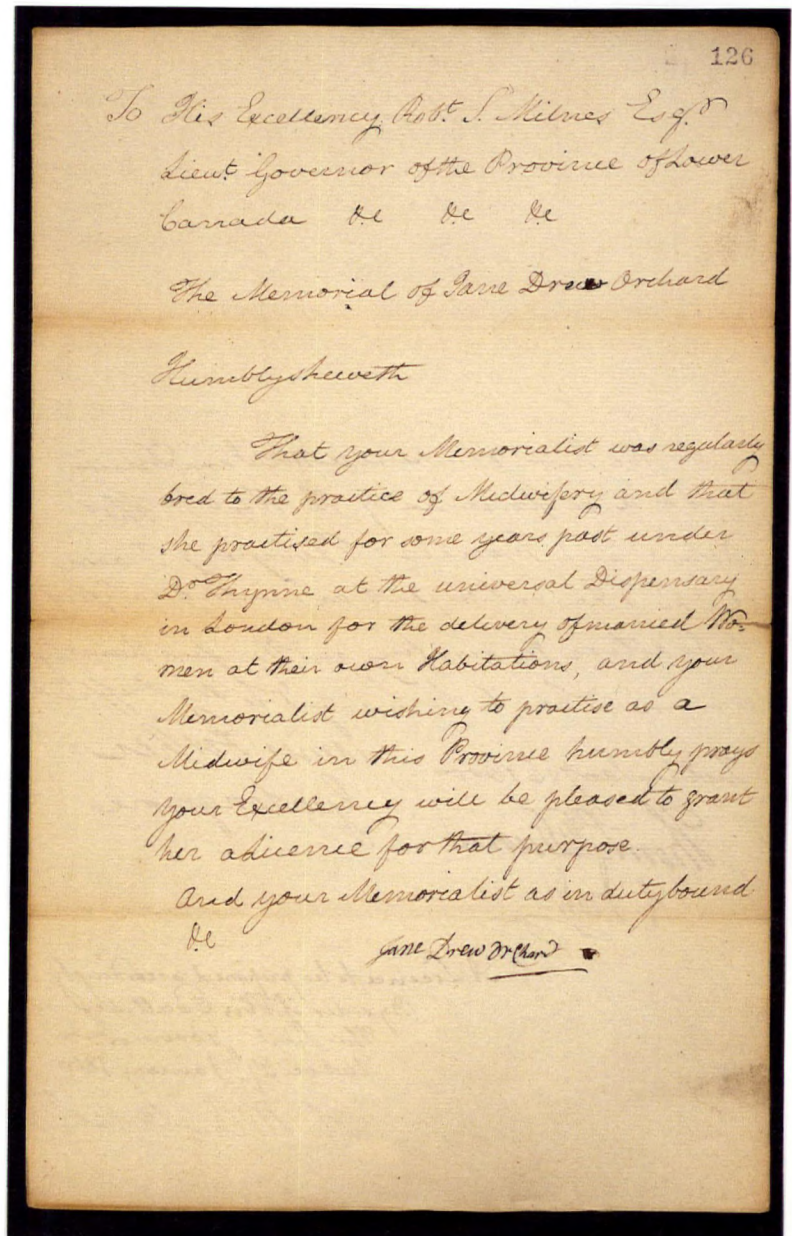 126
To His Excellency Robt. S. Milnes Esqr.
Lieut. Governor of the Province of Lower
Canada &c &c &c
The Memorial of Jane Drew Orchard
Humbly sheweth
That your Memorialist was regularly
bred to the practice of Midwifery and that
she practised for some years past under
Dr. Thynne at the universal Dispensary
in London for the delivery of married Wo-
men at their own Habitations, and your
Memorialist wishing to practise as a
Midwife in this Province humbly prays
your Excellency will be pleased to grant
her a licence for that purpose.
And your Memorialist as in duty bound
&c
Jane Drew Orchard